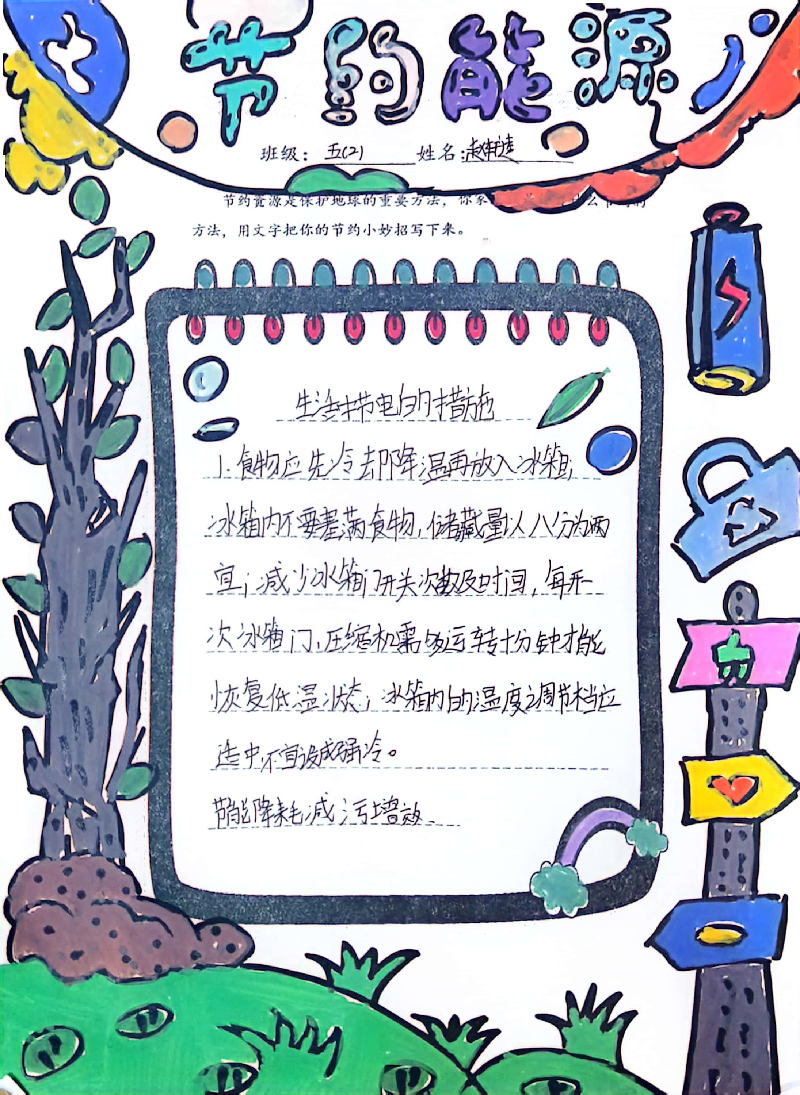 节约能源
班级：五(2) 姓名：
节约资源是保护地球的重要方法，你
方法，用文字把你的节约小妙招写下来。
生活中节电的措施
1、食物应先冷却降温再放入冰箱；
冰箱内不要塞满食物，储藏量以八分为
宜；减少冰箱门开关次数及时间，每开
次冰箱门，压缩机需多运转十分钟才能
恢复低温状态；冰箱内的温度调节档应
适中，不宜设成强冷。
节能降耗减污增效